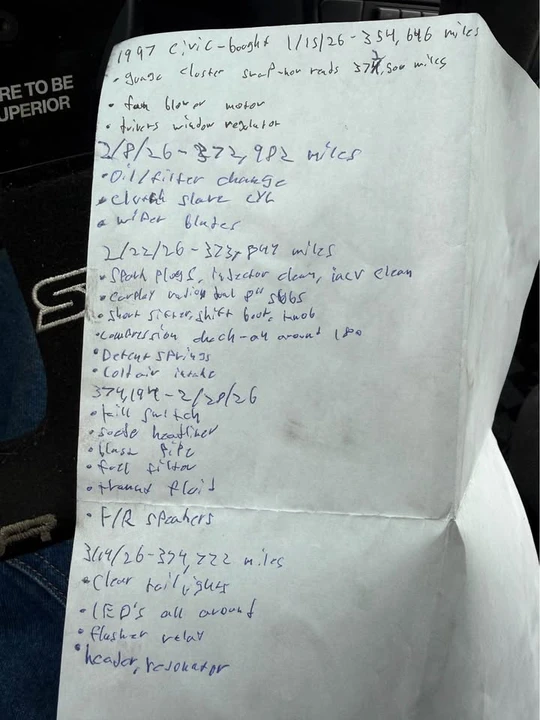 RE TO BE
UPERIOR
1997 Civic-bought 1/15/26-354,646 miles
• guage cluster swap-now reads 372,500 miles
• fan blower motor
• drivers window regulator
2/8/26-372,982 miles
• Oil/filter change
• Clutch slave cyl
• wiper blades
2/22/26-373,847 miles
• Spark plugs, injector clean, iacv clean
• Carplay radio, dual subs
• Short sifter, shift boot, knob
• compression check-all around 180
• Detent springs
• Cold air intake
374,194-2/28/26
• kill switch
• suede headliner
• pipe
• fuel filter
• fluid
• F/R speakers
3/14/26-374,722 miles
• Clear tail lights
• LED's all around
• flasher relay
• header, resonator